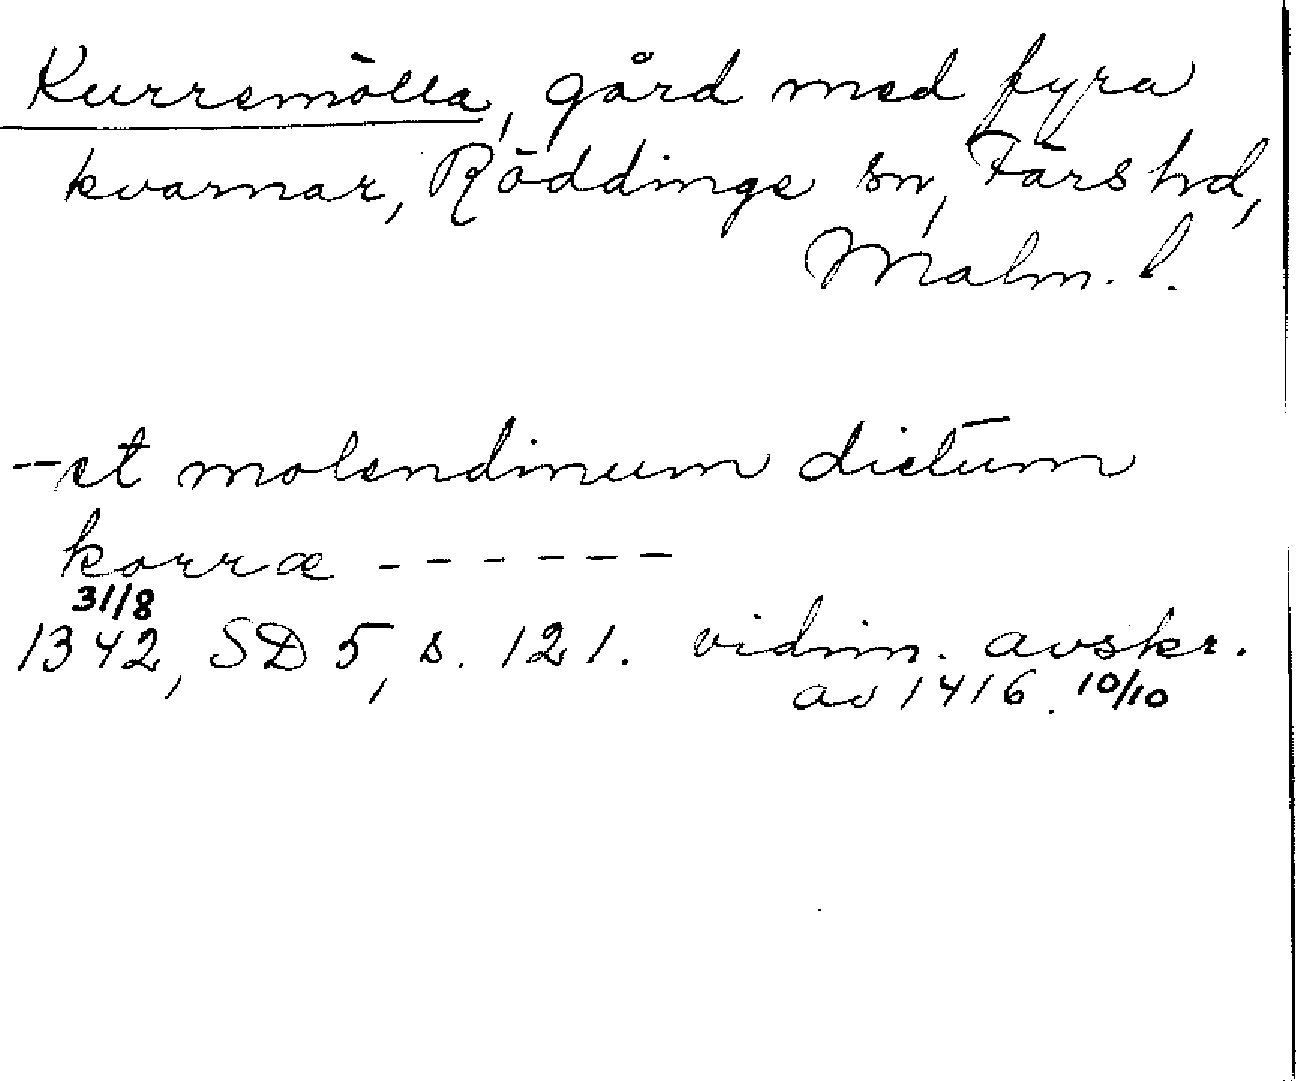 Kurremölla, gård med fyra
kvarnar, Röddinge sn, Färs hd,
Malm. l.
- et molendinum dictum
korræ - - - - - -
31/8
1342, SD 5, s. 121. vidim. avskr.
av 1416. 10/10